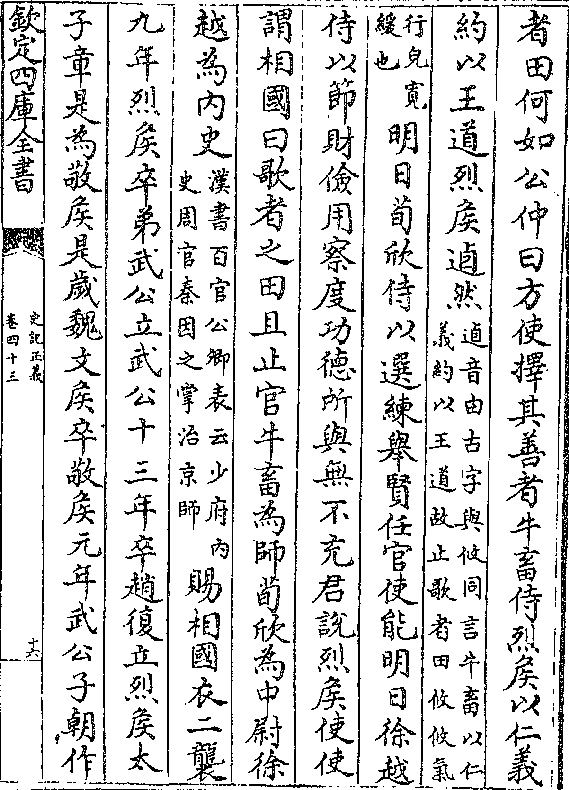 者田何如公仲曰方使擇其善者牛畜侍烈侯以仁義
約以王道烈侯逌然逌音由古字與攸同言牛畜以仁
義約以王道故止歌者田攸攸氣
行皃寛
緩也明日荀欣侍以選練舉賢任官使能明日徐越
侍以節財儉用察度功德所與無不充君説烈侯使使
謂相國曰歌者之田且止官牛畜為師荀欣為中尉徐
越為内史漢書百官公卿表云少府内
史周官秦因之掌治京師賜相國衣二襲
九年烈侯卒弟武公立武公十三年卒趙復立烈侯太
子章是為敬侯是歲魏文侯卒敬侯元年武公子朝作
欽定四庫全書
史記正義
卷四十三
十六